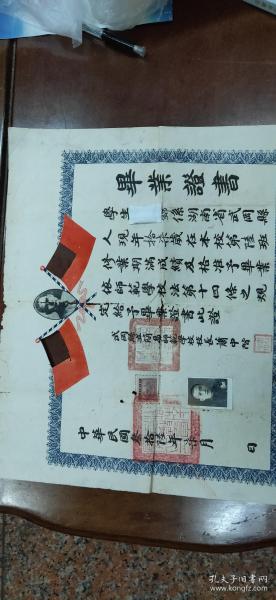 畢業證書
學生 係湖南省武岡縣
人現年拾 歲在本校第陸班
修業期滿成績及格准予畢業
依師範學校法第十四條之規
定給予畢業證書此證
武岡縣立簡易師範學校校長蕭中階
中華民國叁拾陸年 月 日
孔夫子旧书网